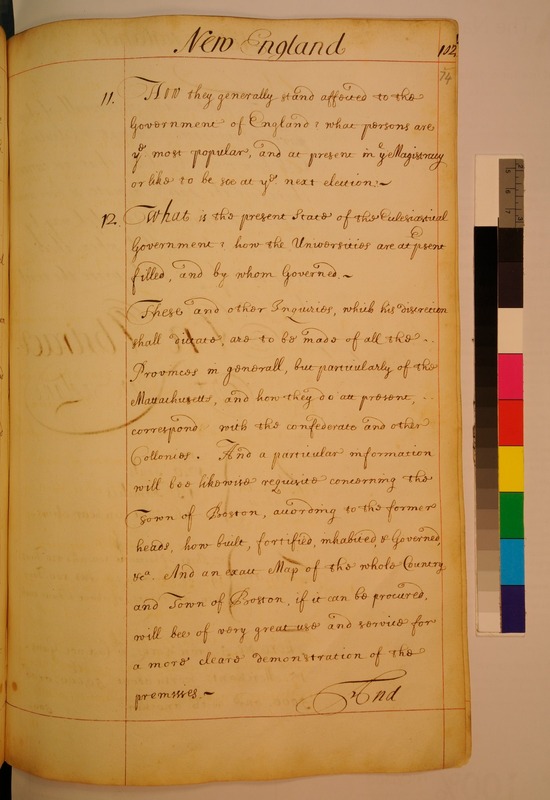 New England
102
74
11. How they generally stand affected to the
Government of England? what persons are
yͤ most popular, and at present in yͤ Magistracy
or like to be soe at yͤ next election.~
12. What is the present State of the Eclesiastical
Government? how the Universities are at p̱sent
filled, and by whom Governed.~
These and other Inquiries, which his discretion
shall dictate, are to be made of all the ..
Provinces in generall, but particularly of the
Mattachusetts, and how they do att present, ..
correspond with the confederate and other
Collonies. And a particular information
will bee likewise requisite concerning the
Town of Boston, according to the former
heads, how built, fortified, inhabited, & Governed,
&cᵃ. And an exact Map of the whole Country
and Town of Boston, if it can be procured,
will bee of very great use and service for
a more cleare demonstration of the
premisses.~
And